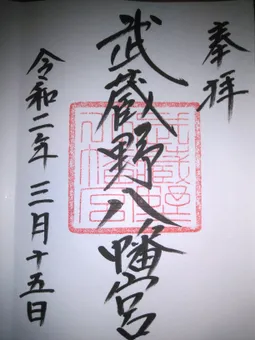 奉拝
武蔵野八幡宮
令和二年三月十五日